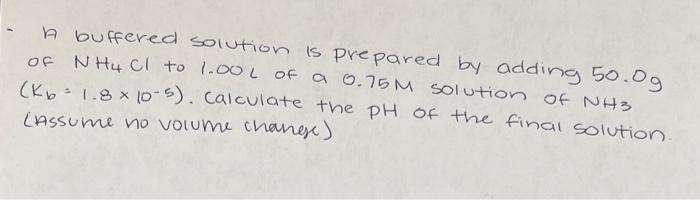 - A buffered solution is prepared by adding 50.0g
of NH4Cl to 1.00L of a 0.75M solution of NH3
(Kb = 1.8 × 10-5). Calculate the pH of the final solution.
(Assume no volume change)